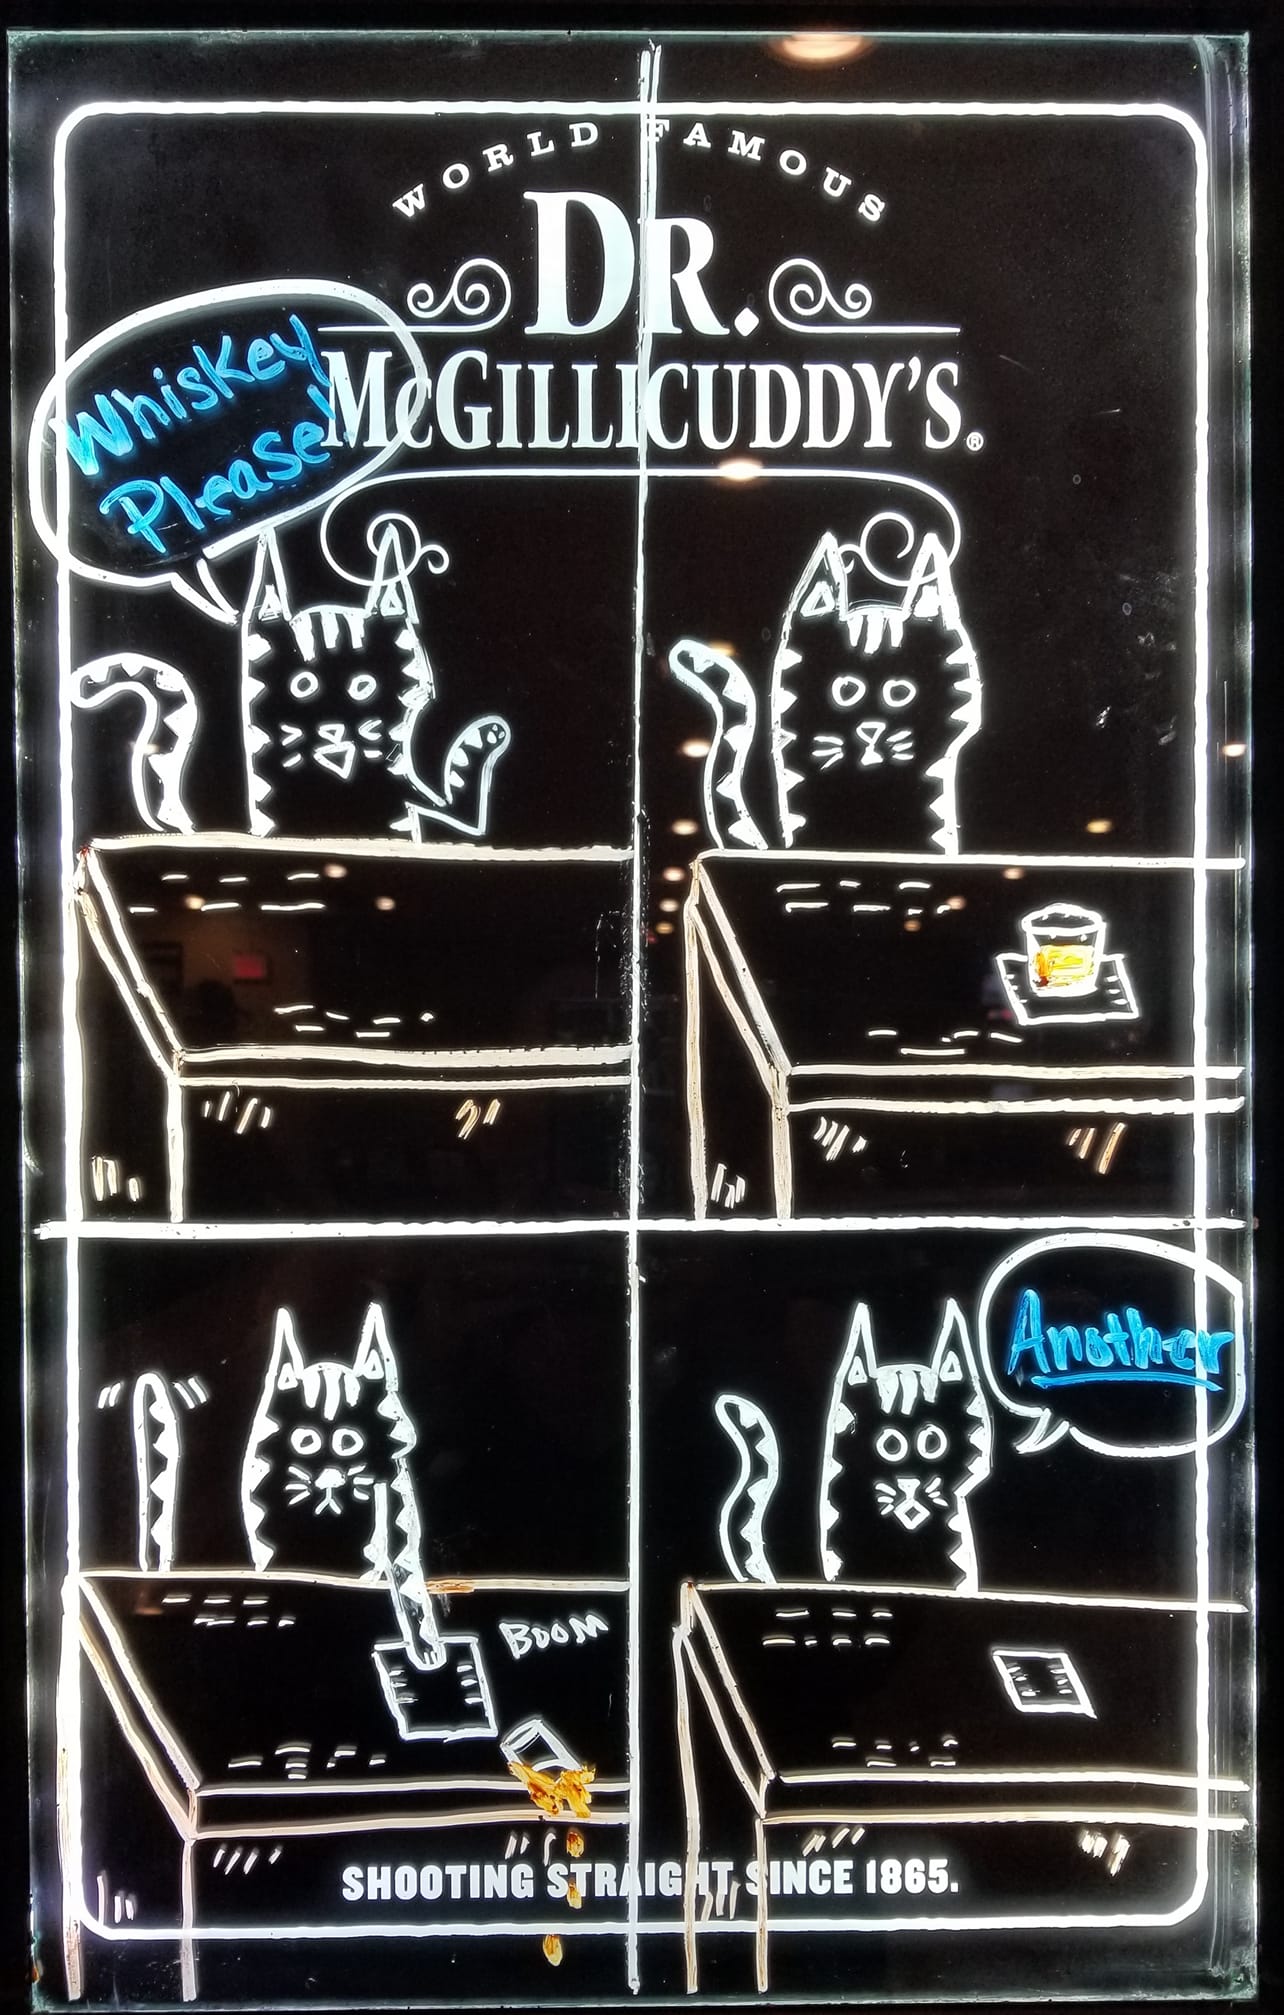 WORLD FAMOUS
DR.
McGILLICUDDY'S®
Whiskey
Please!
BOOM
Another
SHOOTING STRAIGHT SINCE 1865.